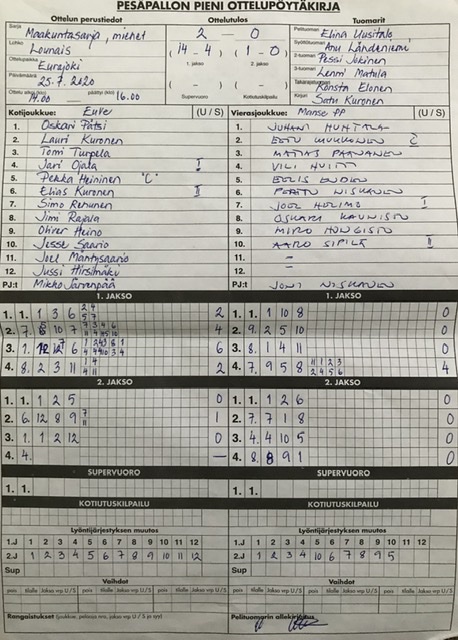 PESÄPALLON PIENI OTTELUPÖYTÄKIRJA
Ottelun perustiedot Ottelutulos Tuomarit
Sarja Maakuntasarja, miehet 2 – 0 Pelituomari Elina Uusitalo
Lohko Lounais (14 - 4) (1 - 0) Syöttötuomari Anu
1. jakso 2. jakso 2-tuomari Pessi Jokinen
Ottelupaikka Eurajoki 3-tuomari Lenni Matula
Päivämäärä 25.7.2020 ( - ) ( - ) Takarajatuomari Konsta Elonen
Ottelu alkoi (klo) 14.00 päättyi (klo) 16.00 Supervuoro Kotiutuskilpailu Kirjuri Satu Kuronen
Kotijoukkue: EuVe (U / S) Vierasjoukkue: Manse PP (U / S)
1. Oskari Pätsi 1. JUHANI HUHTALA
2. Lauri Kuronen 2. EETU
3. Tomi Turpela 3. MATIAS PAANANEN
4. Jari Ojala I 4. VILI HUITTI
5. Pekka Heininen "C" 5. EELIS
6. Elias Kuronen II 6. PERTTU NISKANEN
7. Simo Rehunen 7. JOEL I
8. Jimi Rajala 8. OSKARI KAUNISTO
9. Oliver Heino 9. MIRO HONGISTO
10. Jesse Saario 10. AARO SIPILÄ II
11. Joel Mäntysaario 11. –
12. Jussi Hirsimäki 12. –
PJ:t Mikko Järvenpää PJ:t JONI NISKANEN
1. JAKSO 1. JAKSO
1. 1. 1 3 6 2 4 5 7 2 1. 1. 1 10 8 0
2. 7. 10 7 4 2. 9. 2 5 10 0
3. 1. 6 6 3. 8. 1 4 11 0
4. 8. 2 3 11 1 4 4 11 2 4. 7. 9 5 8 11 1 2 3 2 4 5 6 4
2. JAKSO 2. JAKSO
1. 1. 1 2 5 0 1. 1. 1 2 6 0
2. 6. 12 8 9 7 11 1 2. 7. 7 1 8 0
3. 1. 1 2 12 0 3. 4. 4 10 5 0
4. 4. – 4. 8. 8 9 1 0
SUPERVUORO SUPERVUORO
1. 1. 1. 1.
KOTIUTUSKILPAILU KOTIUTUSKILPAILU
Lyöntijärjestyksen muutos Lyöntijärjestyksen muutos
1.J 1 2 3 4 5 6 7 8 9 10 11 12 1.J 1 2 3 4 5 6 7 8 9 10 11 12
2.J 1 2 3 4 5 6 7 8 9 10 11 12 2.J 1 2 3 4 10 6 7 8 9 5
Sup Sup
Vaihdot Vaihdot
pois tilalle Jakso vrp U / S pois tilalle Jakso vrp U / S pois tilalle Jakso vrp U / S pois tilalle Jakso vrp U / S
Rangaistukset (joukkue, pelaaja nro, jakso vrp U / S ja syy) Pelituomarin allekirjoitus